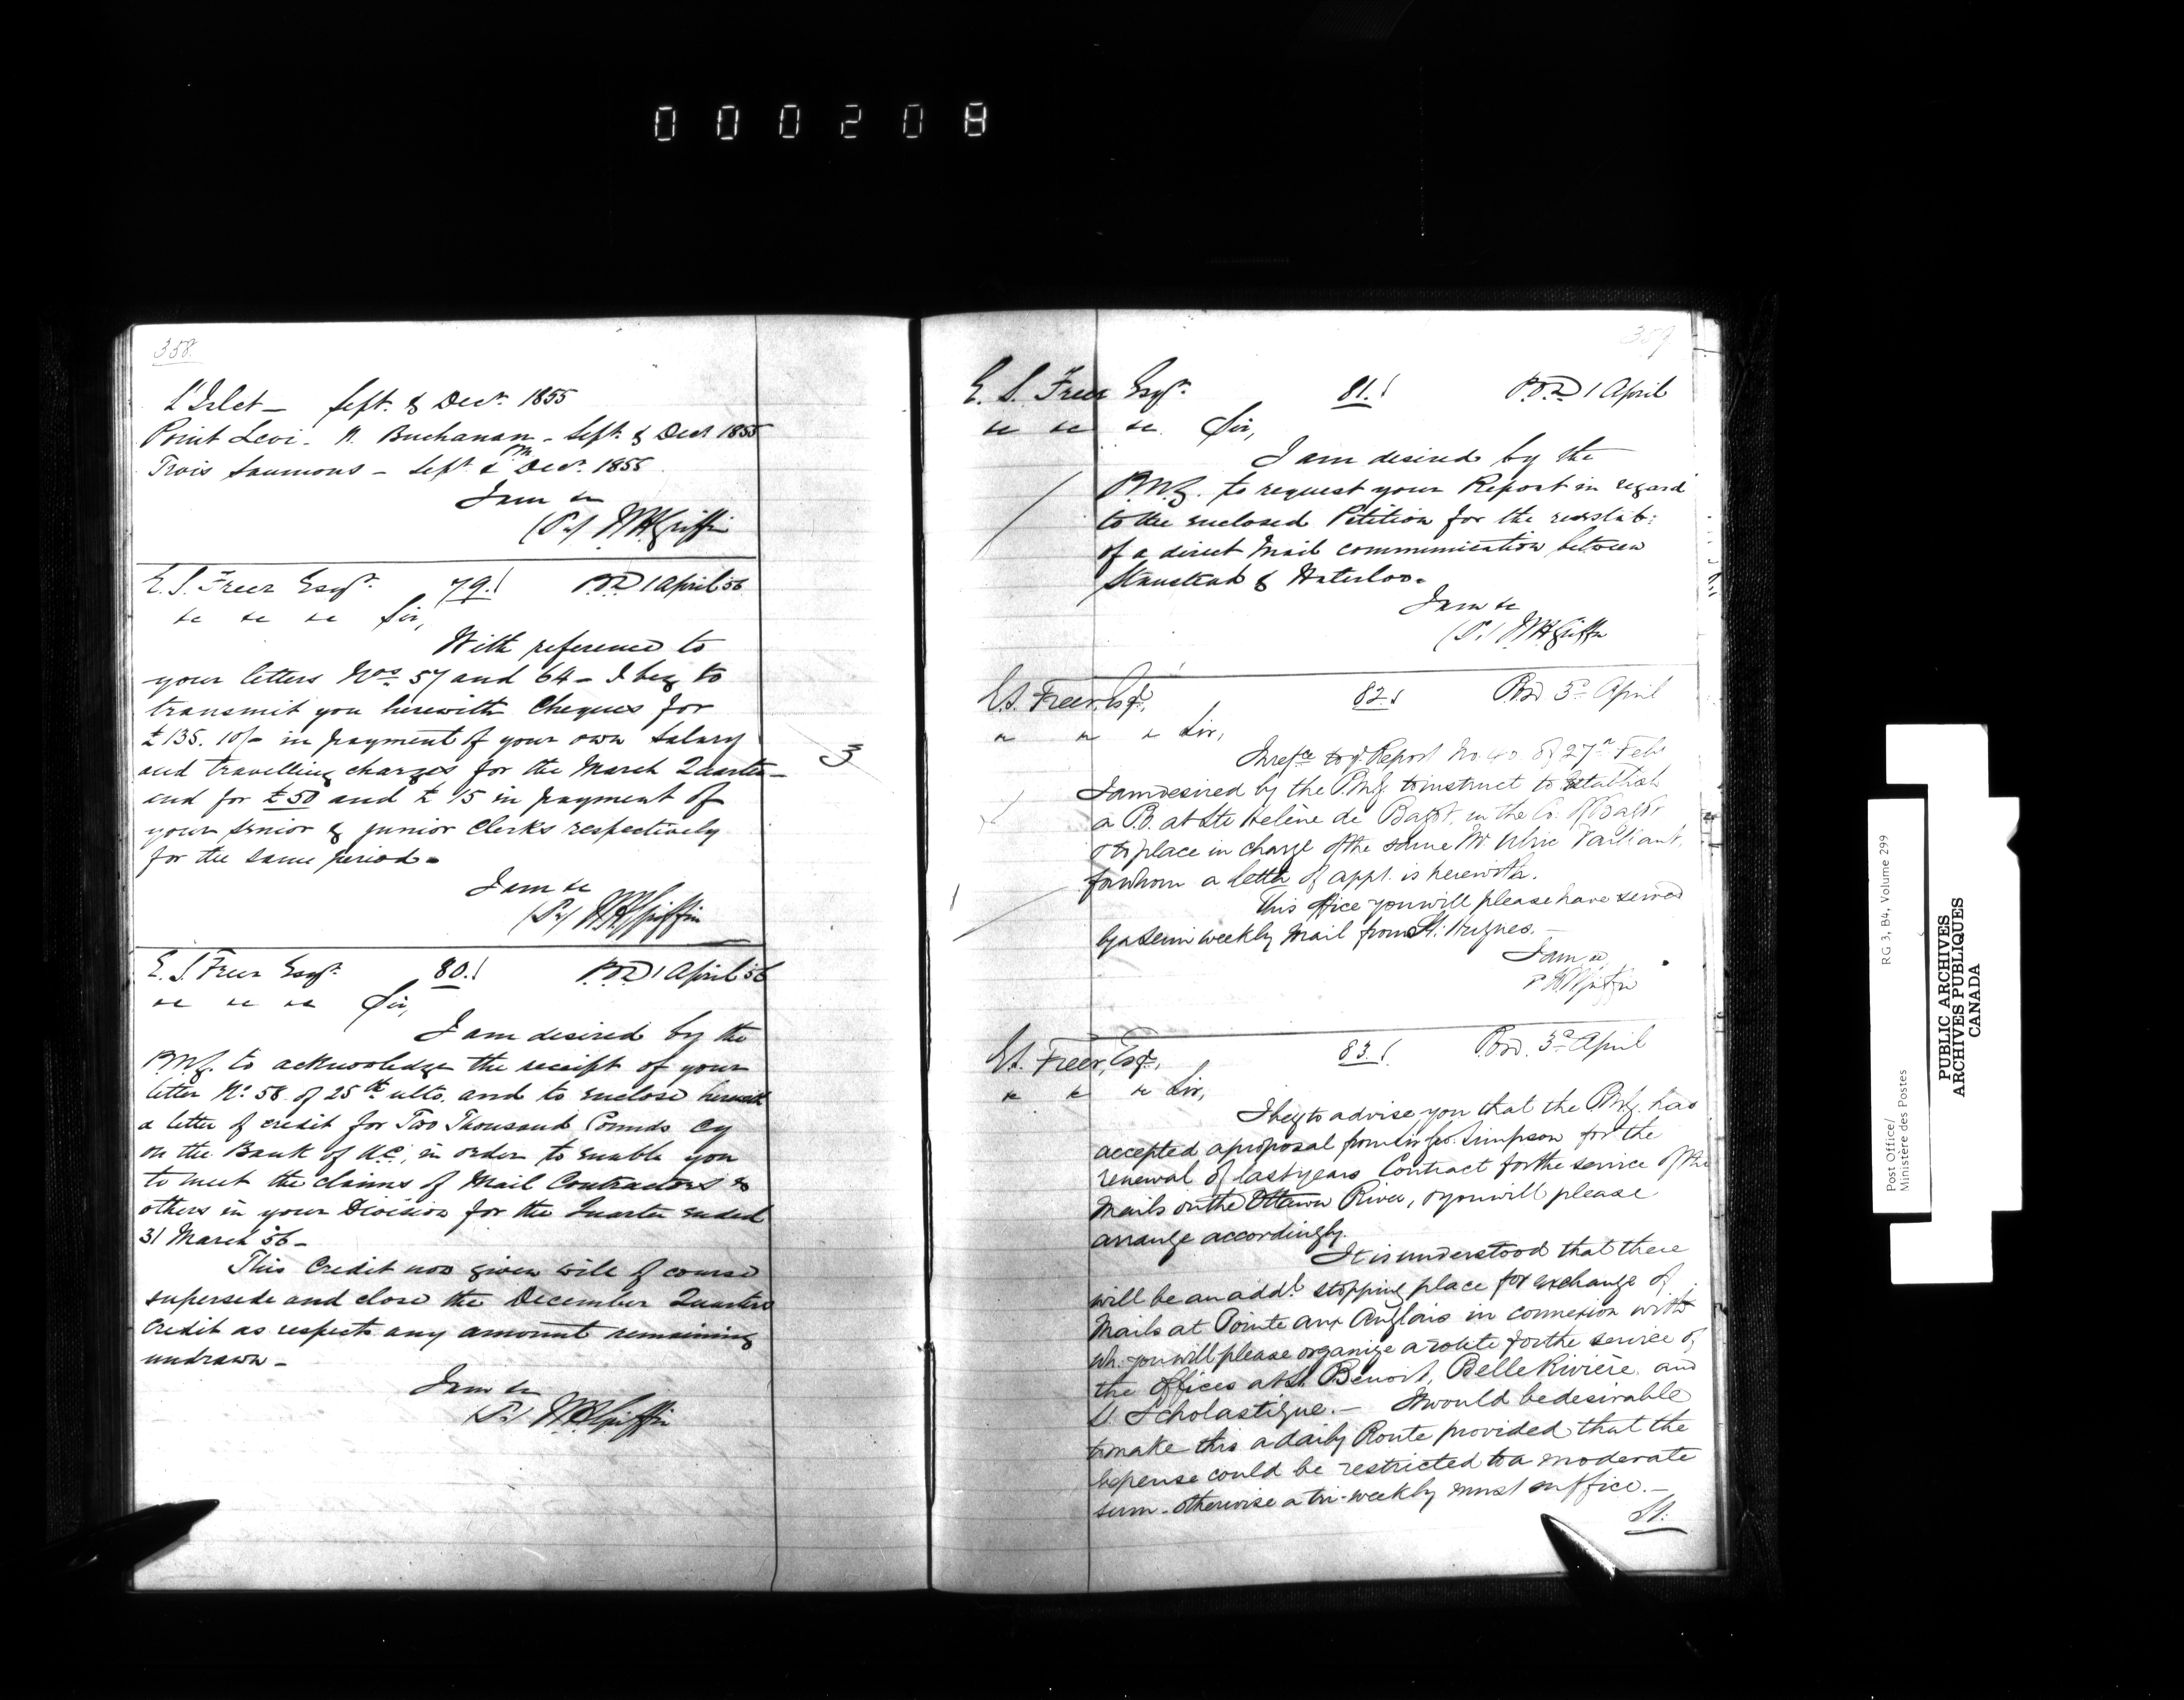 000208
358.
L'Islet - Sept. & Decr. 1855
Point Levi - H. Buchanan - Sept. & Decr 1855
Trois Saumons - Sept. & Decr. 1855
I am &c
(Sd) W H Griffin
E. S. Freer Esqr. 79. P.O.D 1 April 56
&c &c &c Sir,
With reference to
your letters Nos. 57 and 64 - I beg to
transmit you herewith Cheques for
£135. 10/- in payment of your own Salary
and travelling charges for the March Quarter -
and for £50 and £15 in payment of
your senior & junior Clerks respectively
for the same period -
I am &c
(Sd) W H Griffin
3
E. S. Freer Esqr. 80. P.O.D 1 April 56
&c &c &c Sir,
I am desired by the
P.M.G. to acknowledge the receipt of your
letter No. 58 of 25th ulto. and to enclose herewith
a letter of credit for Two Thousand Pounds Cy
on the Bank of U.C., in order to enable you
to meet the claims of Mail Contractors &
others in your Division for the Quarter ended
31 March 56 -
This Credit now given will of course
supersede and close the December Quarters
Credit as respects any amount remaining
undrawn -
I am &c
(Sd) W H Griffin
359
E. S. Freer Esqr. 81. P.O.D 1 April
&c &c &c Sir,
I am desired by the
P.M.G. to request your Report in regard
to the enclosed Petition for the reestab:
of a direct Mail communication between
Stanstead & Waterloo.
I am &c
(Sd) W H Griffin
E.S. Freer, Esq. 82. P.O.D 3d April
" " " Sir,
In refce to yr. Report No. 40 of 27th Feby
I am desired by the P.M.G. to instruct to establish
a P.O. at Ste Helène de Bagot, in the Co. of Bagot
& to place in charge of the same Mr Ulric Vailiant,
for whom a letter of appt. is herewith.
This office you will please have served
by a Semi weekly Mail from St. Hugues. -
I am &c
W H Griffin
E.S. Freer, Esq., 83. P.O.D. 3d April
" " " Sir,
I beg to advise you that the P.M.G. has
accepted a proposal from Sir Geo. Simpson for the
renewal of last years Contract for the service of the
Mails on the Ottawa River, & you will please
arrange accordingly.
It is understood that there
will be an addl. stopping place for exchange of
Mails at Pointe aux Anglais in connexion with
wh. you will please organize a route for the service of
the offices at St. Benoit, Belle Rivière and
St Scholastique. - It would be desirable
to make this a daily Route provided that the
expense could be restricted to a moderate
sum - otherwise a tri-weekly must suffice. -
St.
Post Office/
Ministère des Postes
RG 3, B4, Volume 299
PUBLIC ARCHIVES
ARCHIVES PUBLIQUES
CANADA